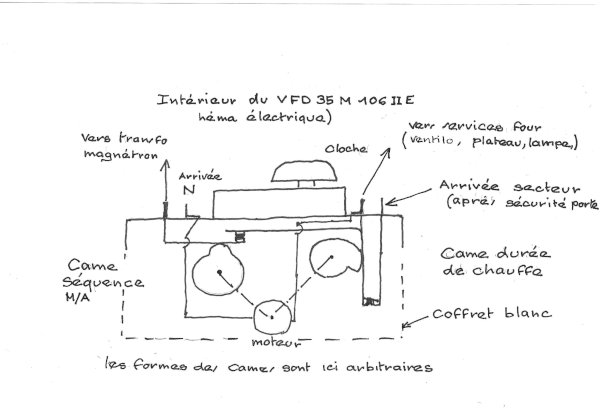 Intérieur du VFD 35 M 106 II E
héma électrique)
vers transfo
magnétron
Arrivée
N
Cloche
vers services four
(ventilo, plateau, lampe,)
Arrivée secteur
(après sécurité porte
Came
séquence
M/A
Came durée
de chauffe
Coffret blanc
moteur
les formes des cames sont ici arbitraires